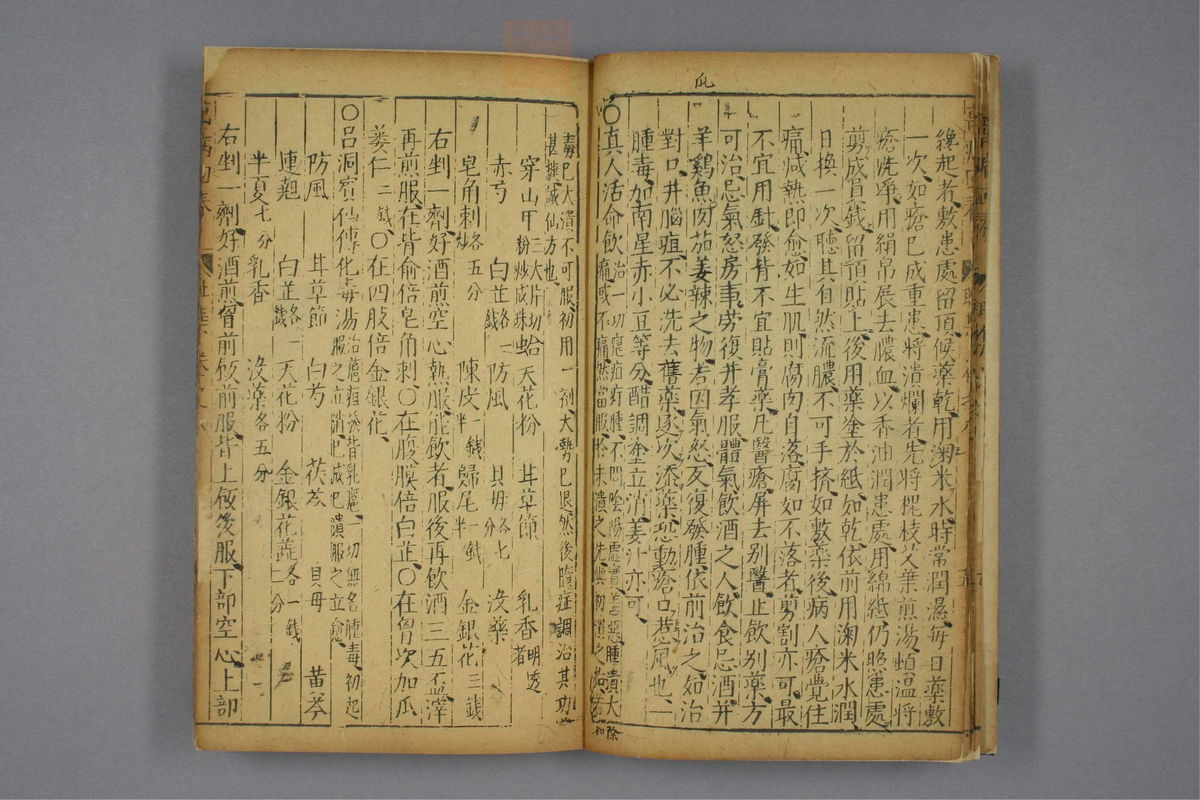 瓜
後起者敷患處留頂候藥乾用淘米水時常潤濕每日藥敷
一次如瘡已成重患將潰爛者先將槐枝艾葉煎湯蛆溫將
瘡洗凈用絹帛展去膿血以香油潤患處用綿紙仍照患處
剪成冒錢留頂貼上後用藥塗於紙如乾依前用淘米水潤
日換一次聽其自然流膿不可手擠如敷藥後病人瘡覺住
痛減熱即愈如生肌則腐肉自落腐如不落者剪割亦可最
不宜用針發背不宜貼膏藥凡醫瘡屏去别醫止飲别藥方
可治忌氣怒房事勞復并孝服體氣飲酒之人飲食忌酒并
羊鷄魚肉茄姜辣之物若因氣怒反復發腫依前治之如治
對口并腦疽不必洗去舊藥逐次添藥恐動瘡口惹風也一
腫毒加南星赤小豆等分醋調塗立消姜汁亦可
○真人活命飲治一切癰疽疔腫不問陰陽虛實善惡腫潰大
痛或不痛然當服於未潰之先與初潰之
毒已大潰不可服初用一剂大勢已退然後隨症調治其功
甚捷誠仙方也
穿山甲三大片切炒成珠 天花粉 甘草節 乳香明透者
赤芍 白芷各一錢 防風 貝母各七分 沒藥
皂角刺各五分 陳皮 歸尾 金銀花三錢
右剉一劑好酒煎空心熱服能飲者服後再飲酒三五盃滓
再煎服在背俞倍皂角刺○在腹膜倍白芷○在胷次加瓜
蔞仁二錢○在四肢倍金銀花
○呂洞賓仙傳化毒湯治癰疽發背乳癰一切無名腫毒初起
服之立消已成已潰服之立愈
防風 甘草節 白芍 茯苓 貝母 黄芩
連翹 白芷各一錢 天花粉 金銀花各一錢二分
半夏七分 乳香 沒藥各五分
右剉一劑好酒煎胷前煎服背上後服下部空心上部